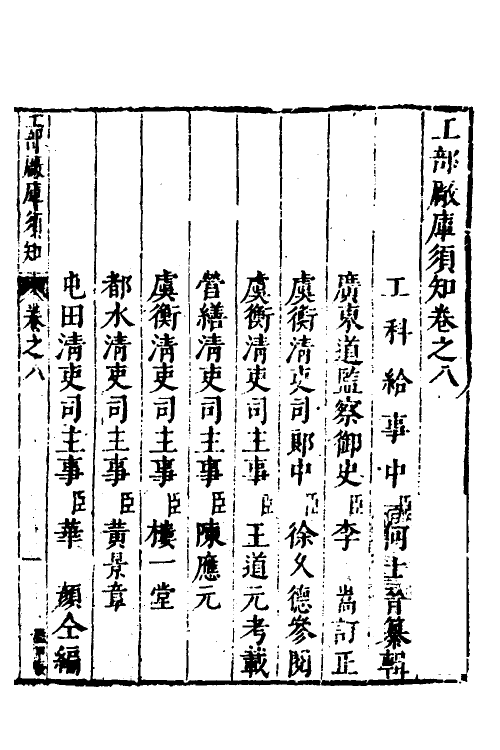 工部厰庫須知卷之八
工科給事中臣何士晉纂輯
廣東道監察御史臣李嵩訂正
虞衡清吏司郎中臣徐乂德參閱
虞衡清吏司主事臣王道元考載
營繕清吏司主事臣陳應元
虞衡清吏司主事臣樓一堂
都水清吏司主事臣黃景章
屯田清吏司主事臣華顏仝編
工部厰庫須知 卷之八 一